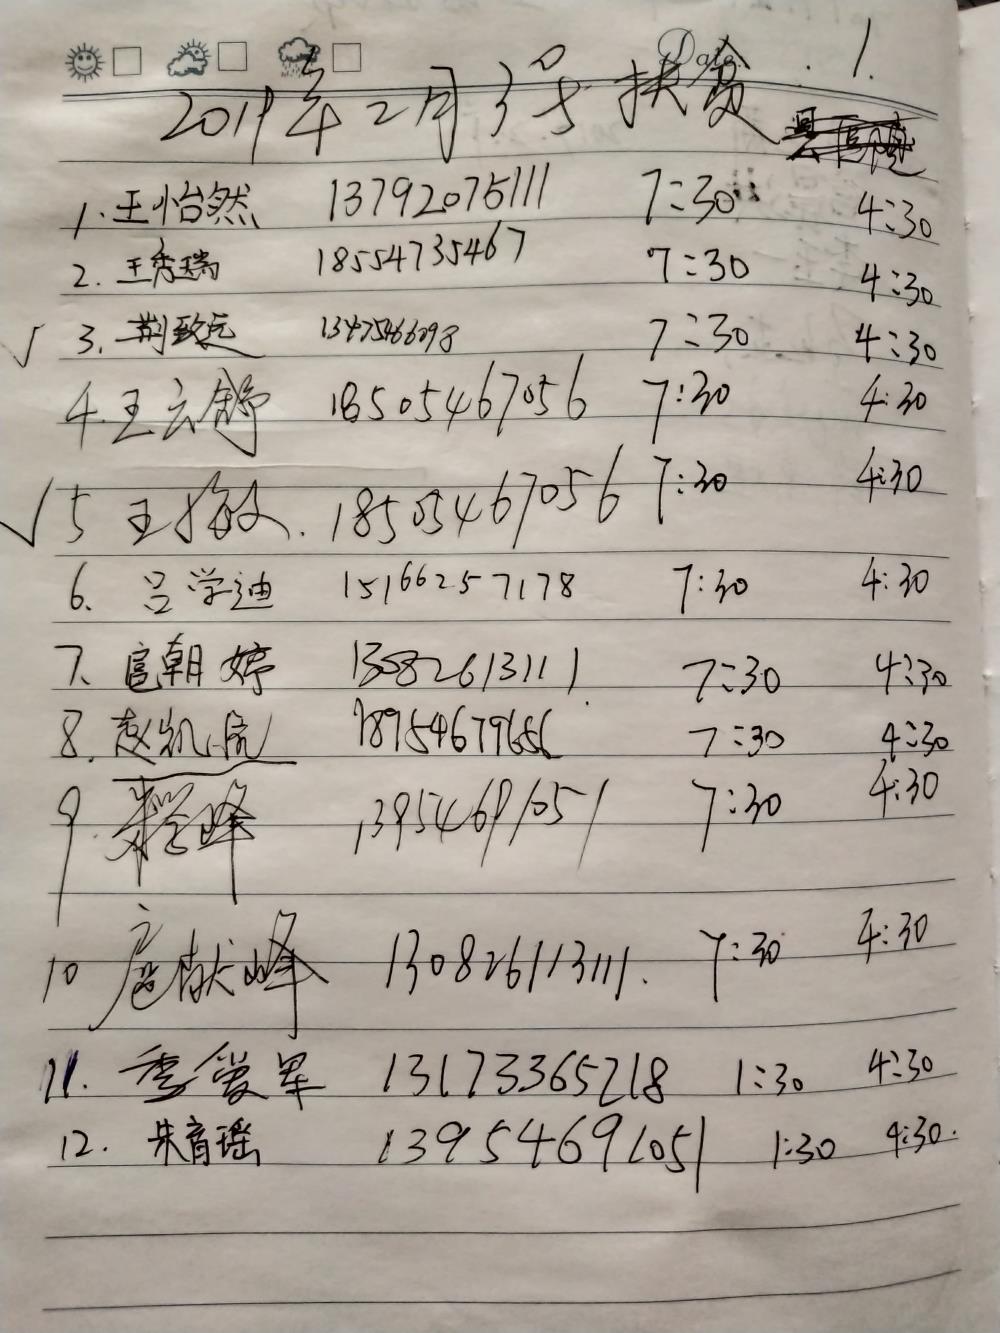 Date 1.
2019年2月3号 扶贫
1. 王怡然 13792075111 7:30 4:30
2. 王秀瑞 18554735467 7:30 4:30
√ 3. 荆致远 13475466098 7:30 4:30
4. 王云舒 18505467056 7:30 4:30
√ 5 王 18505467056 7:30 4:30
6. 吕学迪 15166257178 7:30 4:30
7. 扈朝婷 13082613111 7:30 4:30
8. 赵凯 18954679656 7:30 4:30
9 峰 13954691051 7:30 4:30
10 扈献峰 13082613111. 7:30 4:30
11. 季爱军 13173365218 1:30 4:30
12. 朱育瑶 13954691051 1:30 4:30.